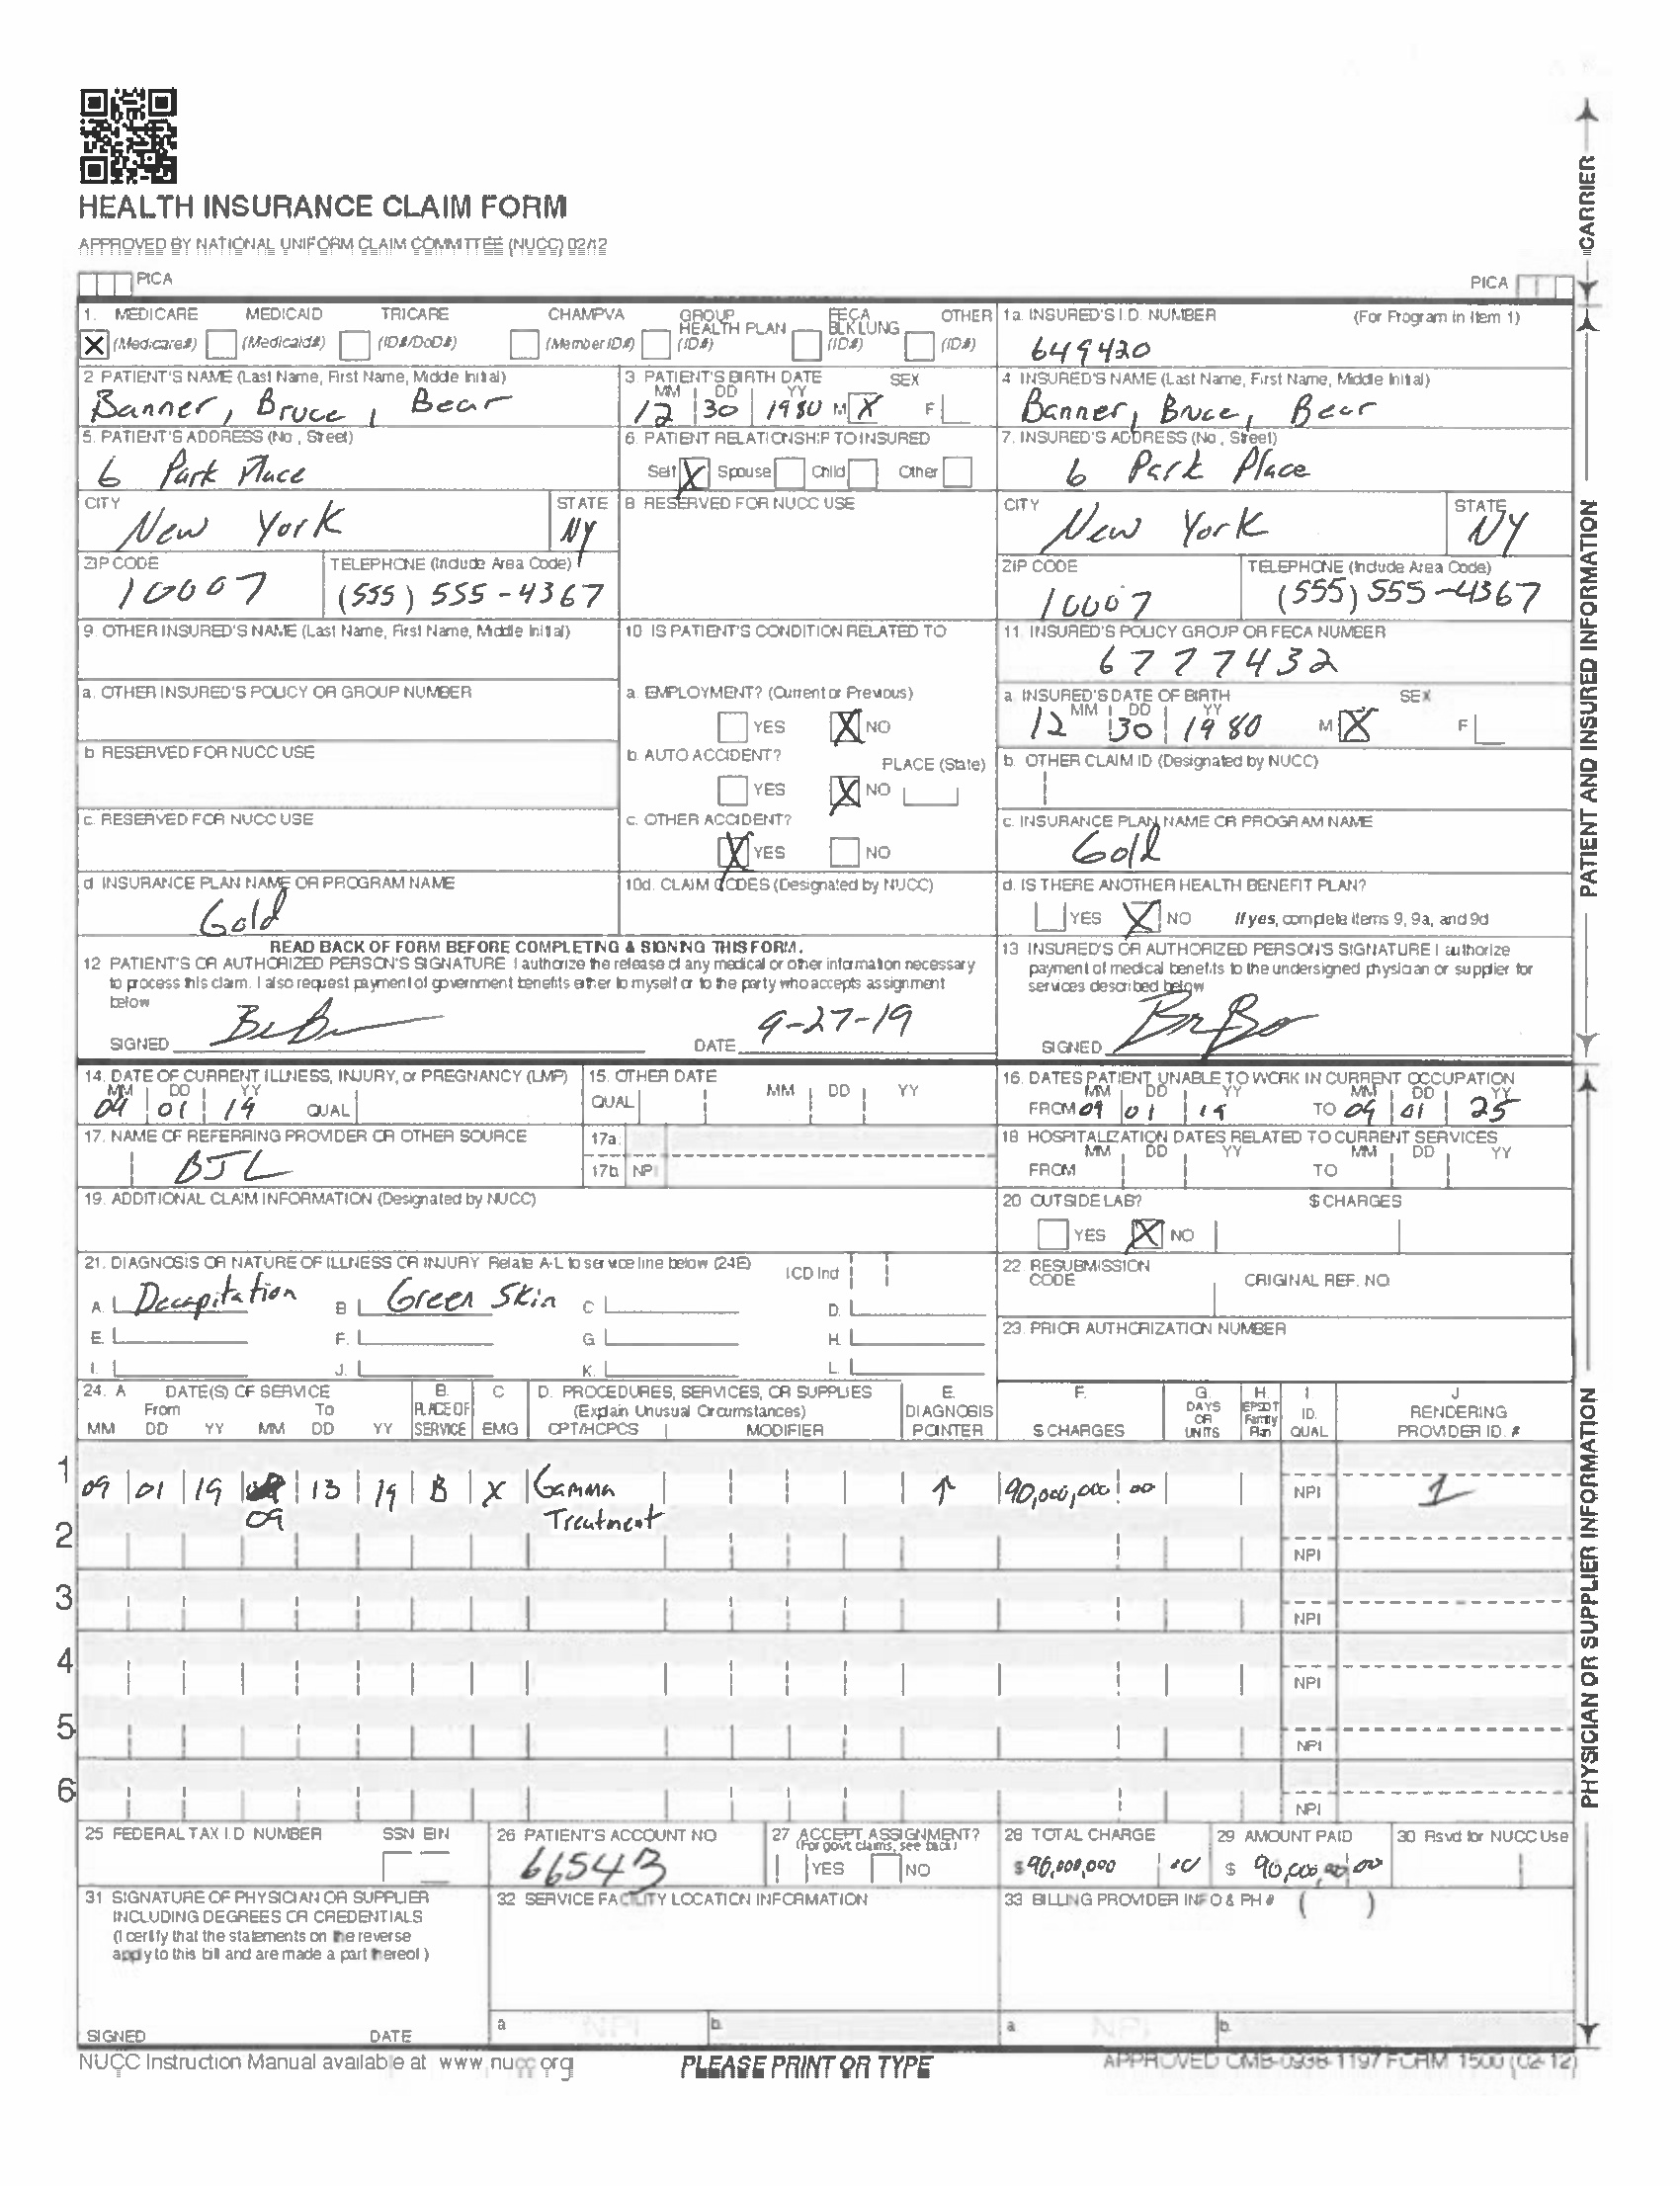 HEALTH INSURANCE CLAIM FORM
APPROVED BY NATIONAL UNIFORM CLAIM COMMITTEE (NUCC) 02/12
CARRIER
PICA PICA
1. MEDICARE MEDICAID TRICARE CHAMPVA GROUP HEALTH PLAN FECA BLK LUNG OTHER
X (Medicare#) (Medicaid#) (ID#/DoD#) (Member ID#) (ID#) (ID#) (ID#)
1a. INSURED'S I.D. NUMBER (For Program in Item 1)
649420
2 PATIENT'S NAME (Last Name, First Name, Middle Initial)
Banner, Bruce, Bear
3 PATIENT'S BIRTH DATE SEX
MM DD YY
12 30 1980 M X F
4 INSURED'S NAME (Last Name, First Name, Middle Initial)
Banner, Bruce, Bear
5. PATIENT'S ADDRESS (No., Street)
6 Park Place
6. PATIENT RELATIONSHIP TO INSURED
Self X Spouse Child Other
7. INSURED'S ADDRESS (No., Street)
6 Park Place
CITY STATE
New York NY
8 RESERVED FOR NUCC USE
CITY STATE
New York NY
ZIP CODE TELEPHONE (Include Area Code)
10007 (555) 555-4367
ZIP CODE TELEPHONE (Include Area Code)
10007 (555) 555-4367
9 OTHER INSURED'S NAME (Last Name, First Name, Middle Initial)
10 IS PATIENT'S CONDITION RELATED TO
11. INSURED'S POLICY GROUP OR FECA NUMBER
6777432
a. OTHER INSURED'S POLICY OR GROUP NUMBER
a. EMPLOYMENT? (Current or Previous)
YES X NO
a. INSURED'S DATE OF BIRTH SEX
MM DD YY
12 30 1980 M X F
b RESERVED FOR NUCC USE
b. AUTO ACCIDENT? PLACE (State)
YES X NO
b. OTHER CLAIM ID (Designated by NUCC)
c. RESERVED FOR NUCC USE
c. OTHER ACCIDENT?
X YES NO
c. INSURANCE PLAN NAME OR PROGRAM NAME
Gold
d INSURANCE PLAN NAME OR PROGRAM NAME
Gold
10d. CLAIM CODES (Designated by NUCC)
d. IS THERE ANOTHER HEALTH BENEFIT PLAN?
YES X NO If yes, complete items 9, 9a, and 9d
READ BACK OF FORM BEFORE COMPLETING & SIGNING THIS FORM.
12 PATIENT'S OR AUTHORIZED PERSON'S SIGNATURE I authorize the release of any medical or other information necessary
to process this claim. I also request payment of government benefits either to myself or to the party who accepts assignment
below
SIGNED DATE 9-27-19
13 INSURED'S OR AUTHORIZED PERSON'S SIGNATURE I authorize
payment of medical benefits to the undersigned physician or supplier for
services described below
SIGNED
PATIENT AND INSURED INFORMATION
14. DATE OF CURRENT ILLNESS, INJURY, or PREGNANCY (LMP)
MM DD YY
09 01 19 QUAL
15. OTHER DATE
QUAL MM DD YY
16. DATES PATIENT UNABLE TO WORK IN CURRENT OCCUPATION
MM DD YY MM DD YY
FROM 09 01 19 TO 09 01 25
17. NAME OF REFERRING PROVIDER OR OTHER SOURCE
BJL
17a.
17b NPI
18 HOSPITALIZATION DATES RELATED TO CURRENT SERVICES
MM DD YY MM DD YY
FROM TO
19. ADDITIONAL CLAIM INFORMATION (Designated by NUCC)
20 OUTSIDE LAB? $ CHARGES
YES X NO
21. DIAGNOSIS OR NATURE OF ILLNESS OR INJURY Relate A-L to service line below (24E) ICD Ind
A. Decapitation B Green Skin C D.
E. F. G H.
I. J. K. L.
22 RESUBMISSION CODE ORIGINAL REF. NO
23 PRIOR AUTHORIZATION NUMBER
24. A DATE(S) OF SERVICE B. C D. PROCEDURES, SERVICES, OR SUPPLIES E. F. G. H. I J
From To PLACE OF (Explain Unusual Circumstances) DIAGNOSIS DAYS OR EPSDT Family ID. RENDERING
MM DD YY MM DD YY SERVICE EMG CPT/HCPCS MODIFIER POINTER $ CHARGES UNITS Plan QUAL PROVIDER ID. #
1 09 01 19 09 13 19 B X Gamma Treatment ↑ 90,000,000 00 NPI 1
2 NPI
3 NPI
4 NPI
5 NPI
6 NPI
25 FEDERAL TAX I.D NUMBER SSN EIN
26 PATIENT'S ACCOUNT NO
27 ACCEPT ASSIGNMENT?
(For govt claims, see back)
YES NO
28 TOTAL CHARGE
$ 90,000,000 00
29 AMOUNT PAID
$ 90,000,000 00
30 Rsvd for NUCC Use
31 SIGNATURE OF PHYSICIAN OR SUPPLIER
INCLUDING DEGREES OR CREDENTIALS
(I certify that the statements on the reverse
apply to this bill and are made a part thereof)
SIGNED DATE
32 SERVICE FACILITY LOCATION INFORMATION
a NPI b.
33 BILLING PROVIDER INFO & PH # ( )
a. NPI b.
PHYSICIAN OR SUPPLIER INFORMATION
NUCC Instruction Manual available at www.nucc.org
PLEASE PRINT OR TYPE
APPROVED OMB-0938-1197 FORM 1500 (02-12)